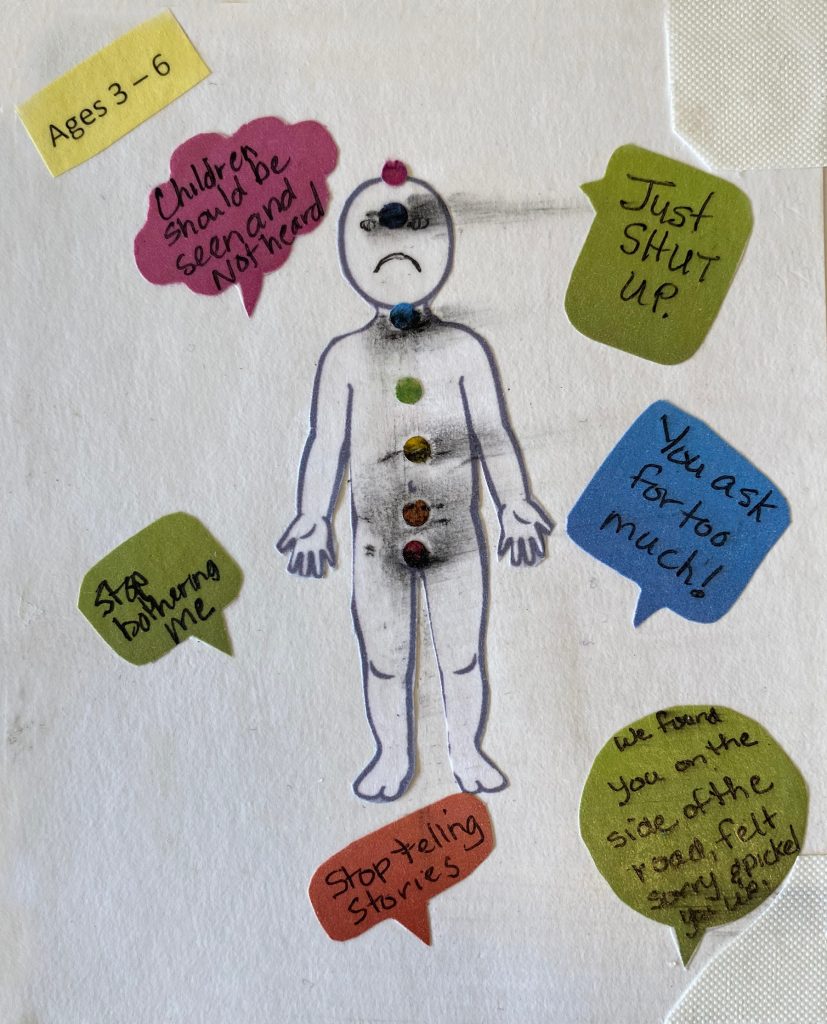 Ages 3 – 6
Children
should be
seen and
Not heard
Just
SHUT
UP.
You ask
for too
much!
Stop
bothering
me
We found
you on the
side of the
road, felt
sorry & picked
you up.
Stop teling
stories